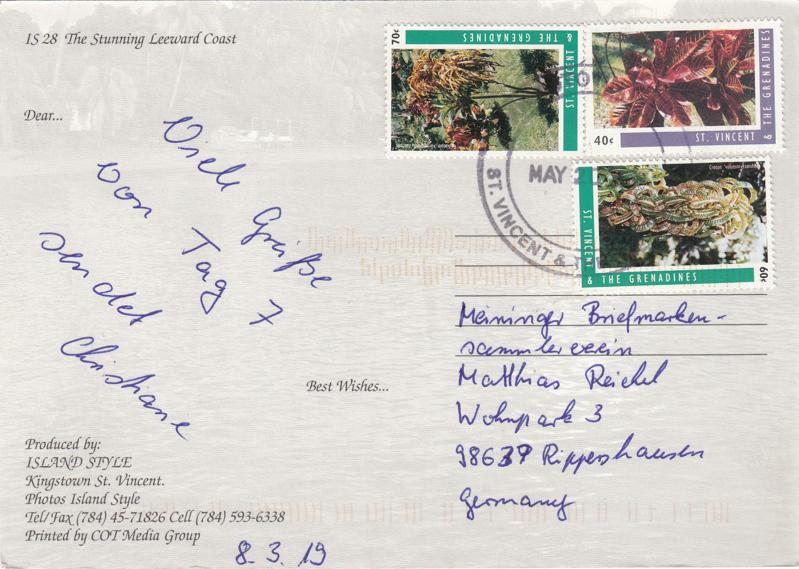 IS 28 The Stunning Leeward Coast
Dear...
Viele Grüße
von Tag 7
sendet
Christiane
Best Wishes...
Produced by:
ISLAND STYLE
Kingstown St. Vincent.
Photos Island Style
Tel/Fax (784) 45-71826 Cell (784) 593-6338
Printed by COT Media Group
8.3.19
70¢
ST. VINCENT
& THE GRENADINES
40¢
ST. VINCENT
& THE GRENADINES
60¢
ST. VINCENT
& THE GRENADINES
MAY 2
ST. VINCENT &
Meininger Briefmarken-
sammlerverein
Matthias Reichel
Wohnpark 3
98639 Rippershausen
Germany